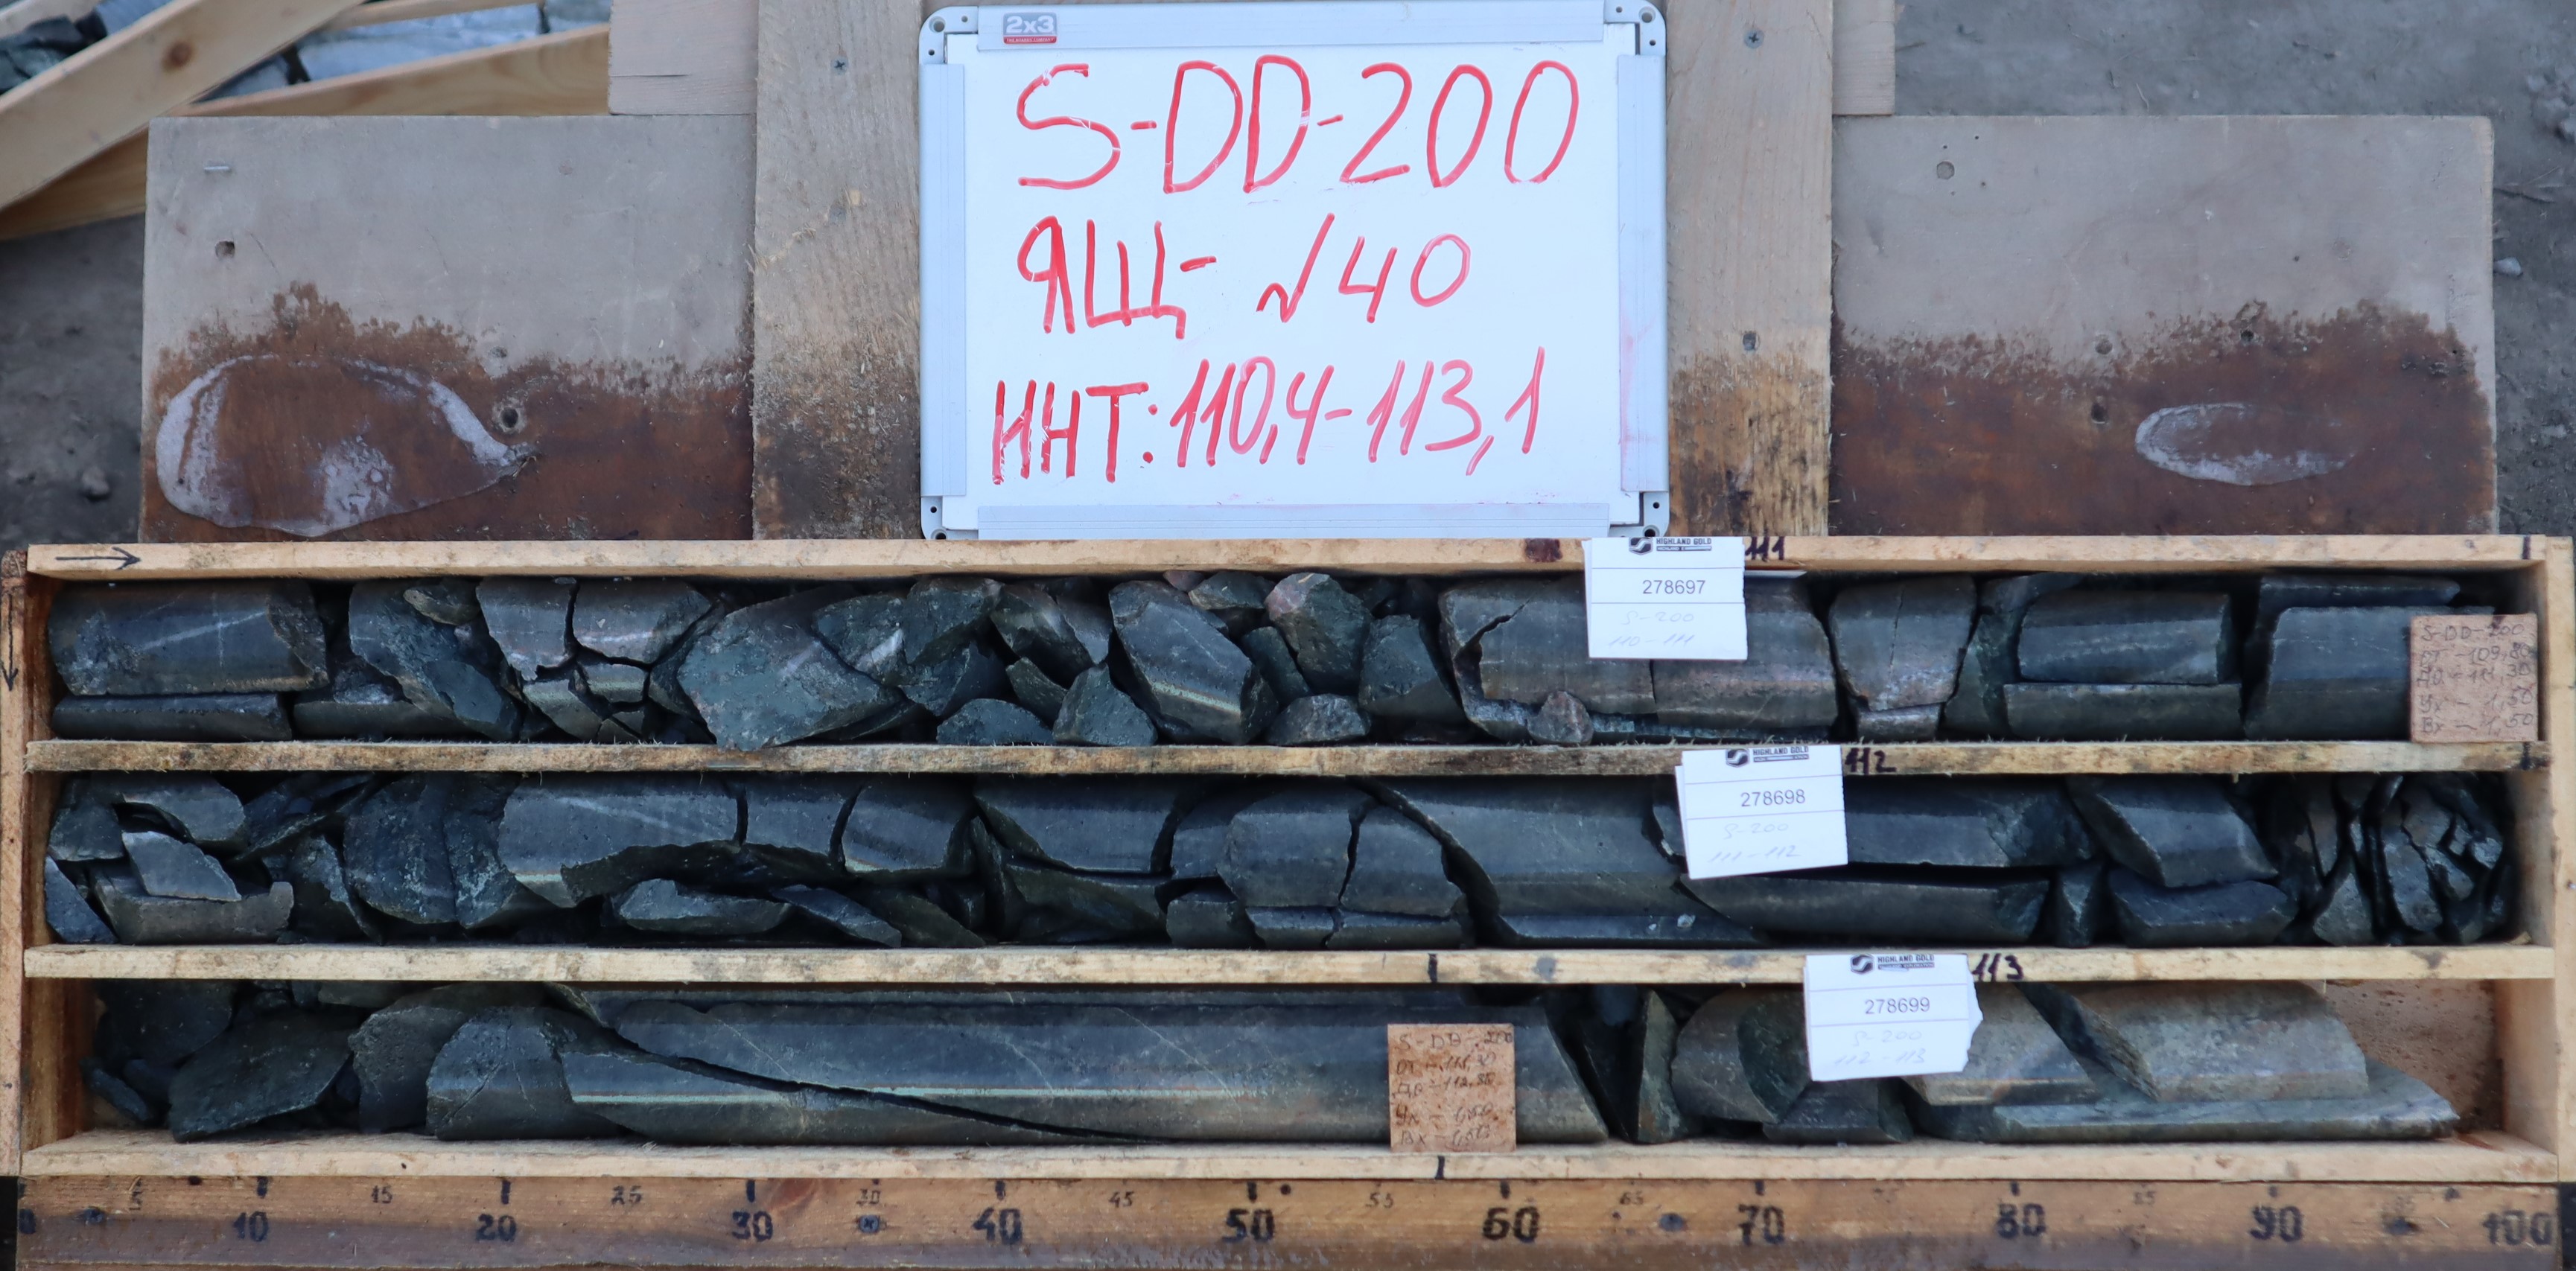 2x3
S-DD-200
ЯЩ- №40
ИНТ: 110,4-113,1
111
HIGHLAND GOLD
278697
S-200
110-111
S-DD-200
ОТ -109,80
ДО -111,30
Ух - 1,50
Вх - 1,50
112
HIGHLAND GOLD
278698
S-200
111-112
113
HIGHLAND GOLD
278699
S-200
112-113
S-DD-200
ОТ - 111,30
ДО - 112,80
5 15 25 30 45 55 65 85
0 10 20 30 40 50 60 70 80 90 100